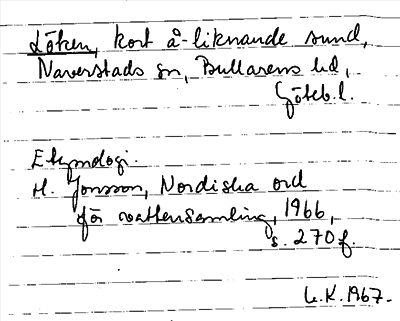 Löken, kort å-liknande sund,
Naverstads sn, Bullarens hd,
Göteb. l.
Etymologi.
H. Jonsson, Nordiska ord
för vattensamling, 1966,
s. 270 f.
L. K. 1967.